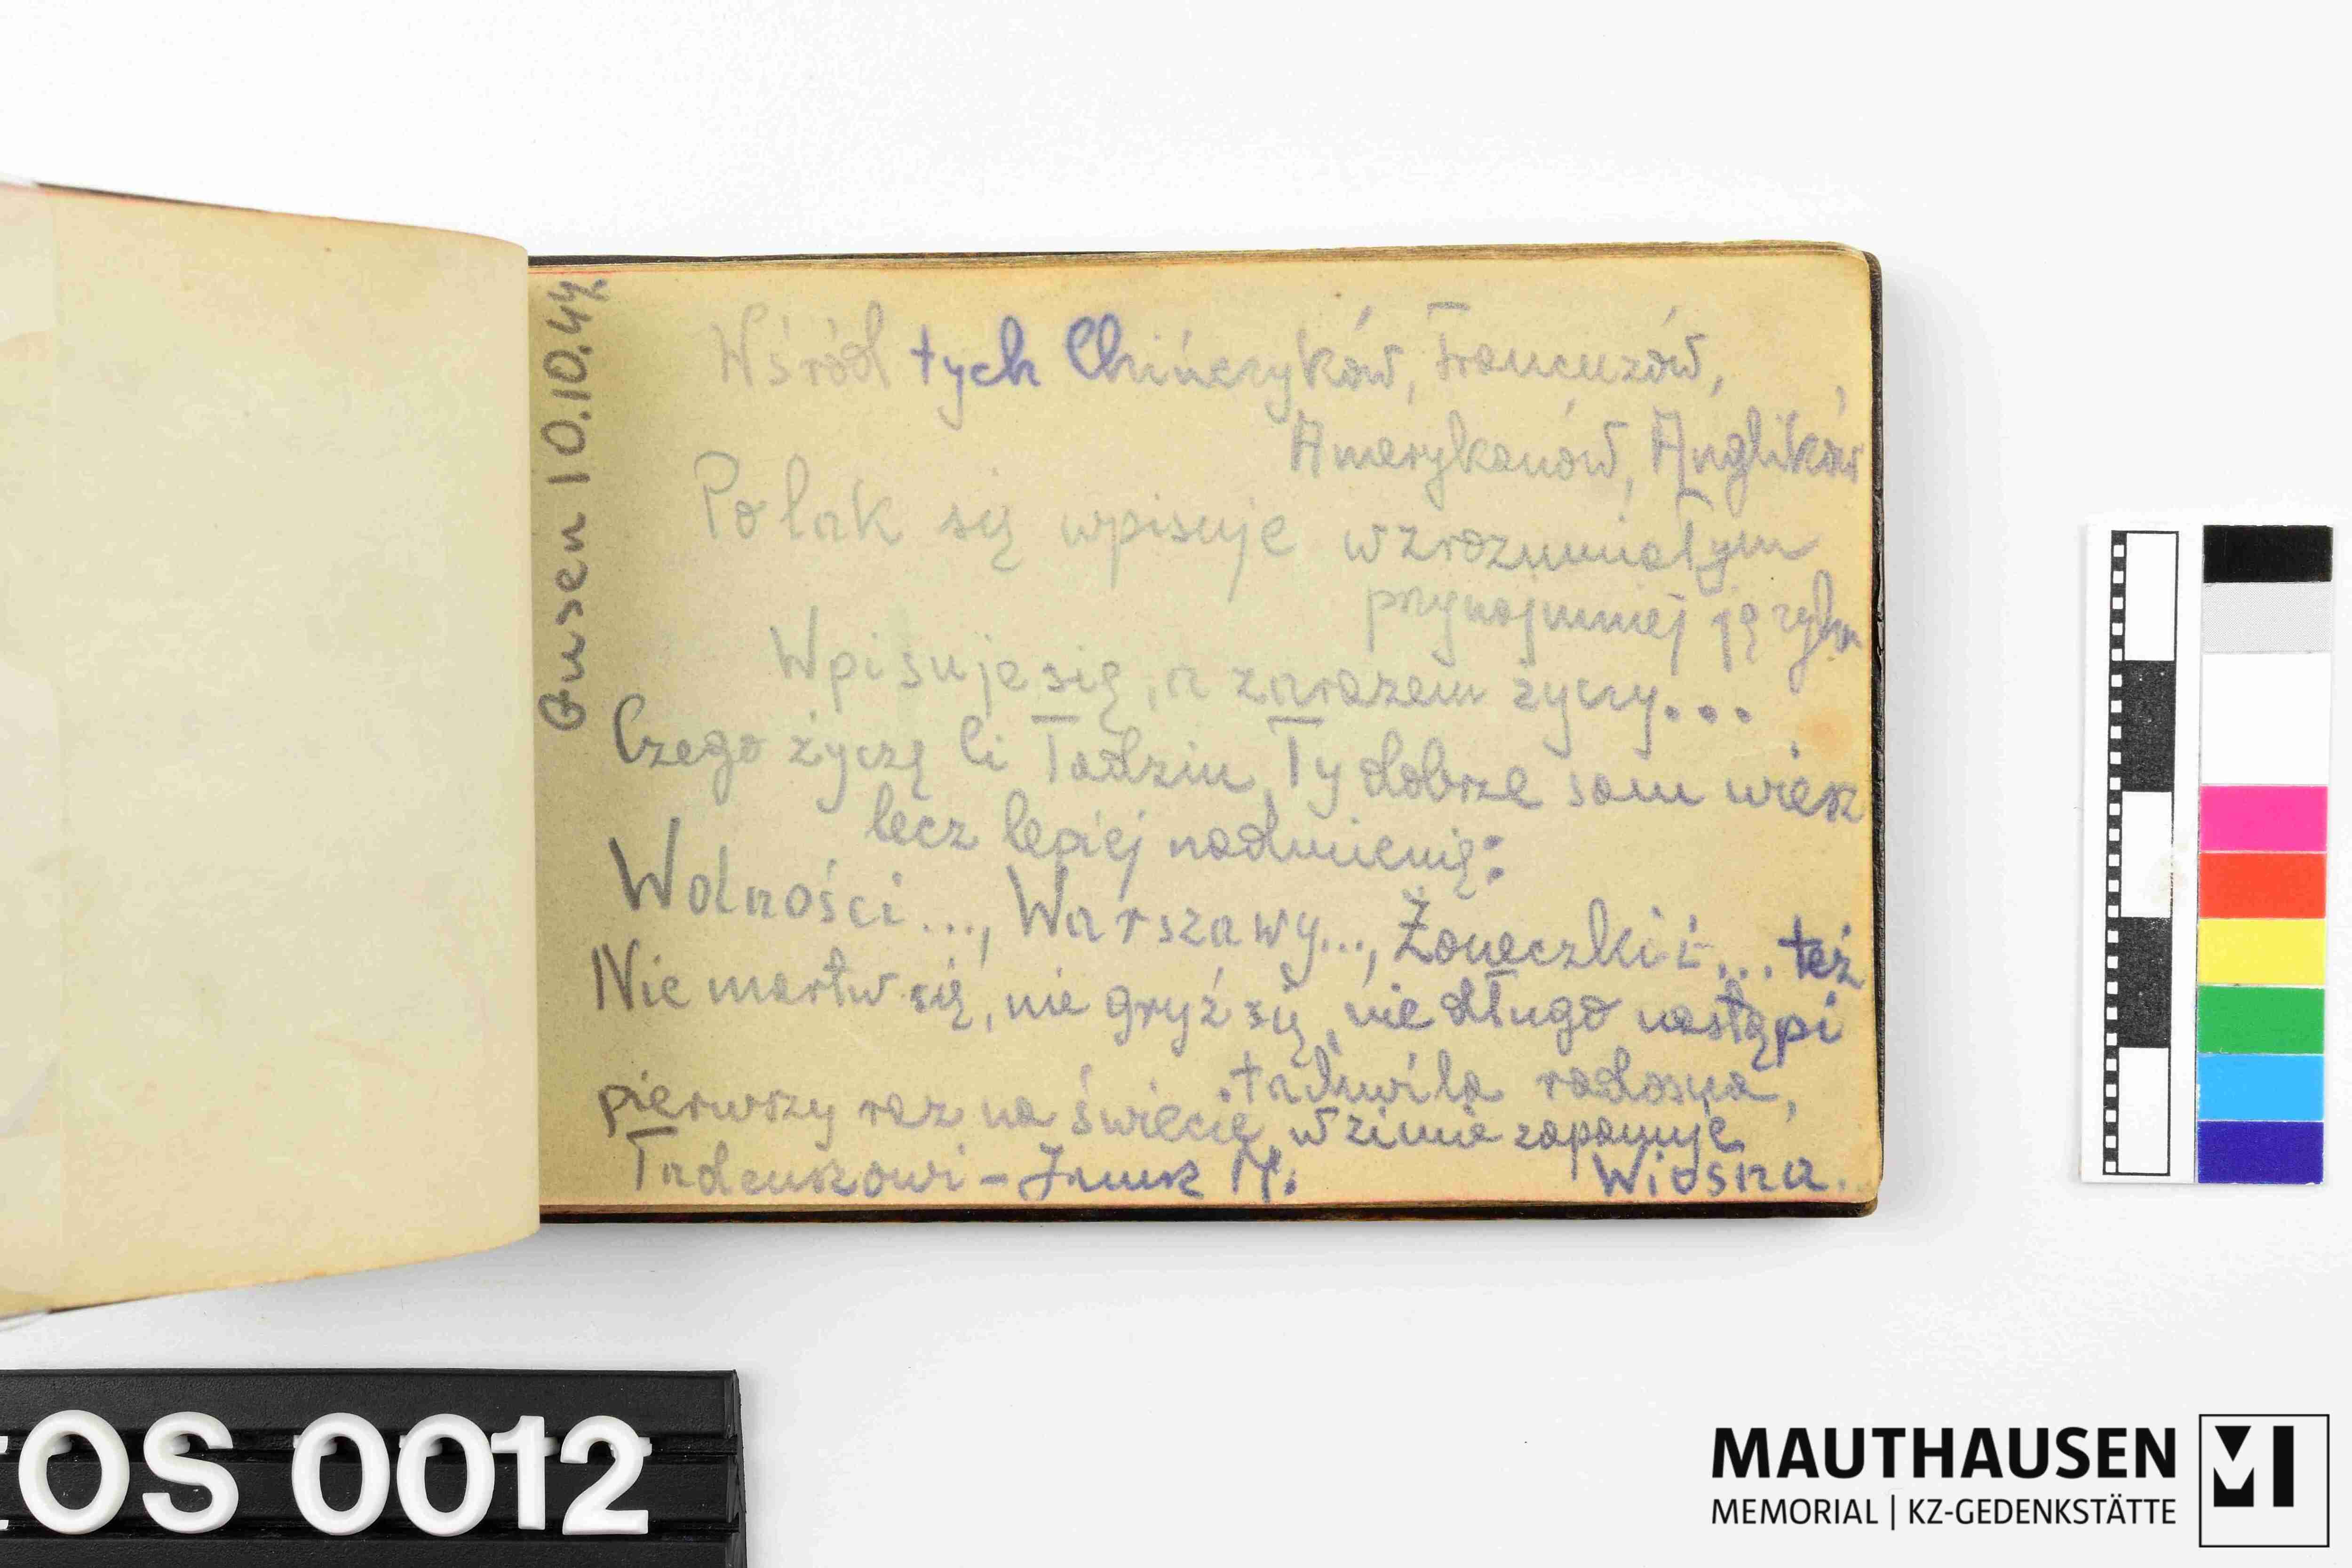 Gusen 10.10.44.
Wśród tych Chińczyków, Francuzów,
Amerykanów, Anglików
Polak się wpisuje w zrozumiałym
przynajmniej języku
Wpisuje się, a zarazem życzy...
Czego życzę Ci Tadziu, Ty dobrze sam wiesz
lecz lepiej nadmienię:
Wolności..., Warszawy..., Żoneczki i... też
Nie martw się, nie gryź się, nie długo nastąpi
ta chwila radosna,
pierwszy raz na świecie, w zimie zapanuje
Wiosna.
Tadeuszowi - Janek M.
OS 0012
MAUTHAUSEN
MEMORIAL | KZ-GEDENKSTÄTTE